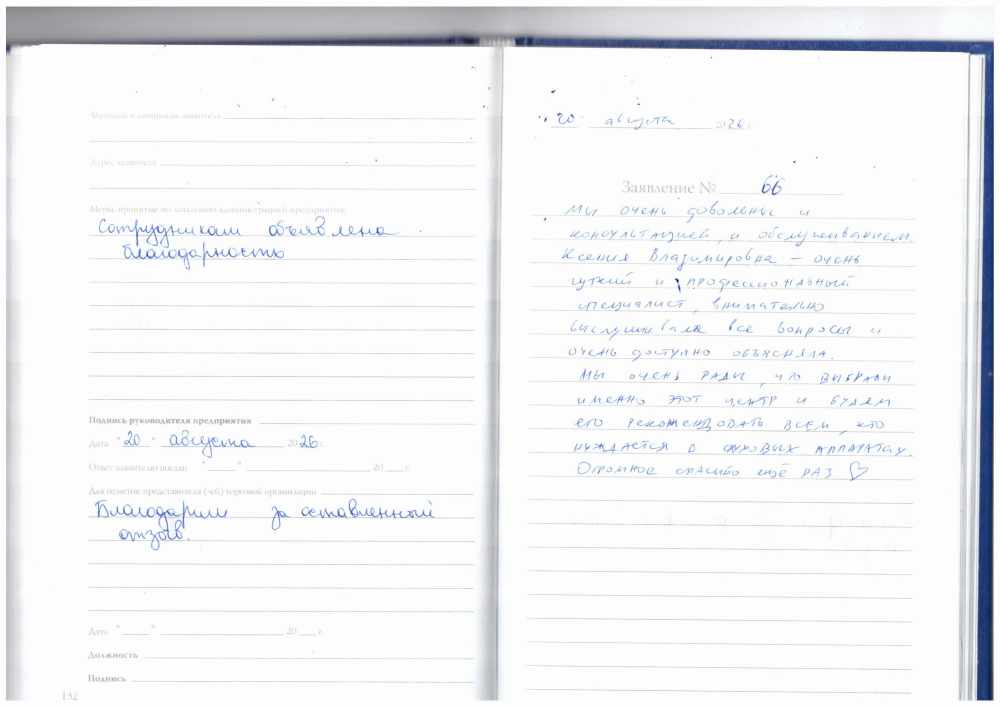 Фамилия и инициалы заявителя
Адрес заявителя
Меры, принятые по заявлению администрацией предприятия
Сотрудникам объявлена
благодарность
Подпись руководителя предприятия
Дата "20" августа 2026 г.
Ответ заявителю послан " " 20 г.
Для пометок представителя (-ей) торговой организации
Благодарим за оставленный
отзыв.
Дата " " 20 г.
Должность
Подпись
132
"20" августа 2026 г.
Заявление № 66
Мы очень довольны и
консультацией, и обслуживанием.
Ксения Владимировна – очень
чуткий и профессиональный
специалист, внимательно
выслушивала все вопросы и
очень доступно объясняла.
Мы очень рады, что выбрали
именно этот центр и будем
его рекомендовать всем, кто
нуждается в слуховых аппаратах.
Огромное спасибо ещё раз ♡